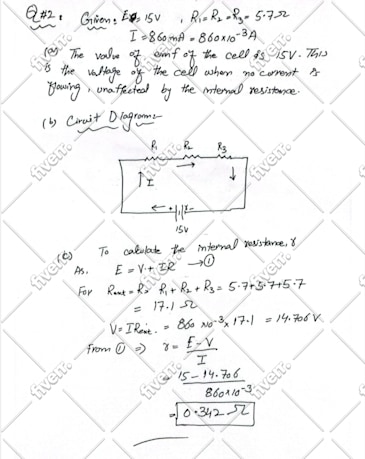 Q#2: Given: E = 15V , R₁ = R₂ = R₃ = 5.7Ω
I = 860mA = 860x10⁻³A
(a) The value of emf of the cell is 15V. This
is the voltage of the cell when no current is
flowing, unaffected by the internal resistance.
(b) Circuit Diagram:-
R₁ R₂ R₃
I
+ -
15V
(c) To calculate the internal resistance, r
As, E = V + IR → ①
For Rext = R₁ + R₂ + R₃ = 5.7+5.7+5.7
= 17.1 Ω
V = IRext. = 860 x10⁻³ x 17.1 = 14.706 V
from ① ⇒ r = E - V / I
= 15 - 14.706 / 860x10⁻³
= 0.342 Ω
fiverr.